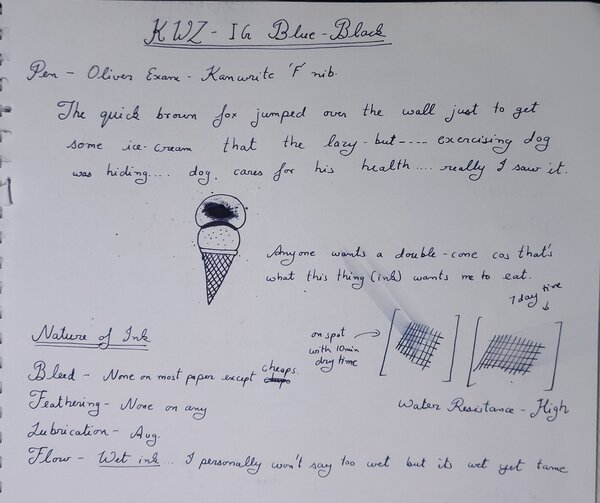 KWZ - IG Blue-Black
Pen - Oliver Exam - Kanwrite 'F' nib.
The quick brown fox jumped over the wall just to get
some ice-cream that the lazy-but---- exercising dog
was hiding.... dog cares for his health.... really I saw it.
Anyone wants a double-cone cos that's
what this thing (ink) wants me to eat.
1 day
time
on spot
with 10min
dry time
Water Resistance - High
Nature of Ink
Bleed - None on most paper except cheaps.
Feathering - None on any
Lubrication - Avg.
Flow - Wet ink... I personally won't say too wet but its wet yet tame